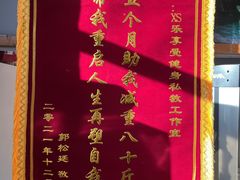 ：XS乐享受健身私教工作室
五个月助我减重八十斤
带我重启人生再塑自我
郭松廷 敬
二零二一年十二